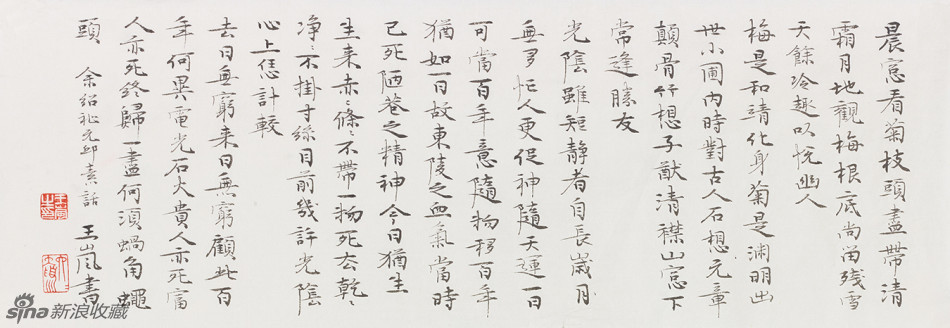 晨窓看菊枝頭盡帶清
霜月地觀梅根底尚留残雪
天餘冷趣以悦幽人
梅是和靖化身菊是渊明出
世小圃内時對古人石想元章
顛骨竹想子猷清襟山窓下
常逢勝友
光陰雖短静者自長歲月
無多忙人更促神隨天運一日
可當百年意隨物移百年
猶如一日故東陵之血氣當時
已死陋巷之精神今日猶生
生来赤〻條〻不帶一物死去乾〻
净〻不掛寸絲目前幾許光陰
心上恁計較
去日無窮来日無窮顧此百
年何異電光石火貴人亦死富
人亦死終歸一盡何須蝸角蠅
頭 余紹祉元邱素話 王嵐書
sina新浪收藏